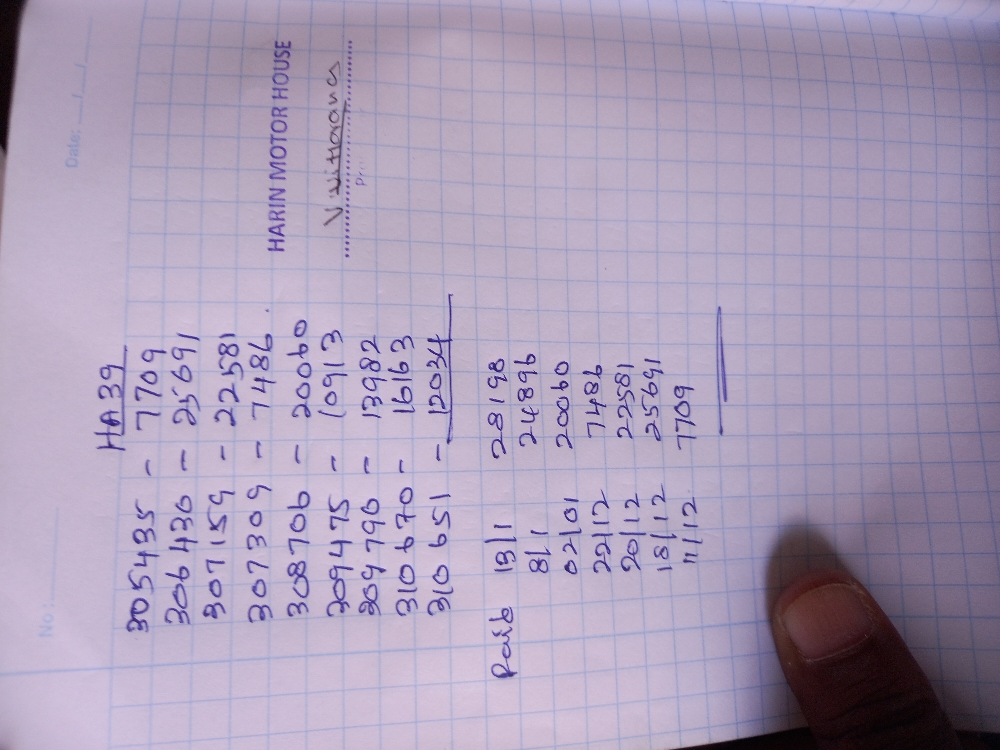 No:
Date: __/__/__
HA39
305435 - 7709
306430 - 25691
307159 - 22581
307309 - 7486.
308706 - 20060
309475 - 10913
309790 - 13982
310670 - 16163
310651 - 12034
HARIN MOTOR HOUSE
13/1 28198
8/1 24896
02/01 20060
22/12 7486
20/12 22581
18/12 25691
11/12 7709